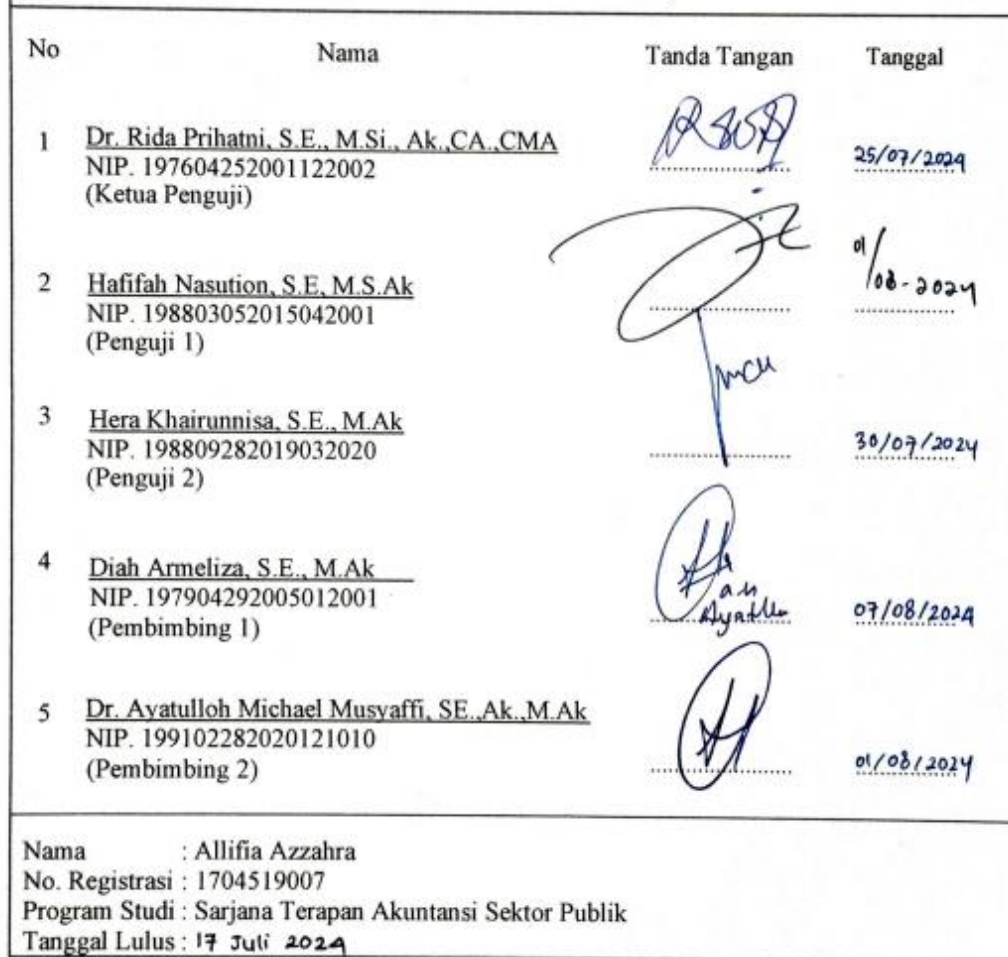 No Nama Tanda Tangan Tanggal
1 Dr. Rida Prihatni, S.E., M.Si., Ak.,CA.,CMA
NIP. 197604252001122002 25/07/2024
(Ketua Penguji)
2 Hafifah Nasution, S.E, M.S.Ak
NIP. 198803052015042001 01/08-2024
(Penguji 1)
3 Hera Khairunnisa, S.E., M.Ak
NIP. 198809282019032020 30/07/2024
(Penguji 2)
4 Diah Armeliza, S.E., M.Ak
NIP. 197904292005012001 an
(Pembimbing 1) Ayatulloh 07/08/2024
5 Dr. Ayatulloh Michael Musyaffi, SE.,Ak.,M.Ak
NIP. 199102282020121010
(Pembimbing 2) 01/08/2024
Nama : Allifia Azzahra
No. Registrasi : 1704519007
Program Studi : Sarjana Terapan Akuntansi Sektor Publik
Tanggal Lulus : 17 Juli 2024